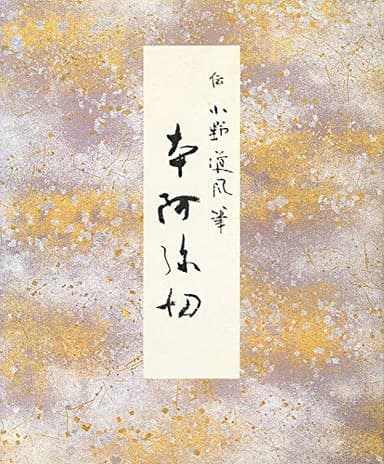 伝 小野道風筆
本阿弥切